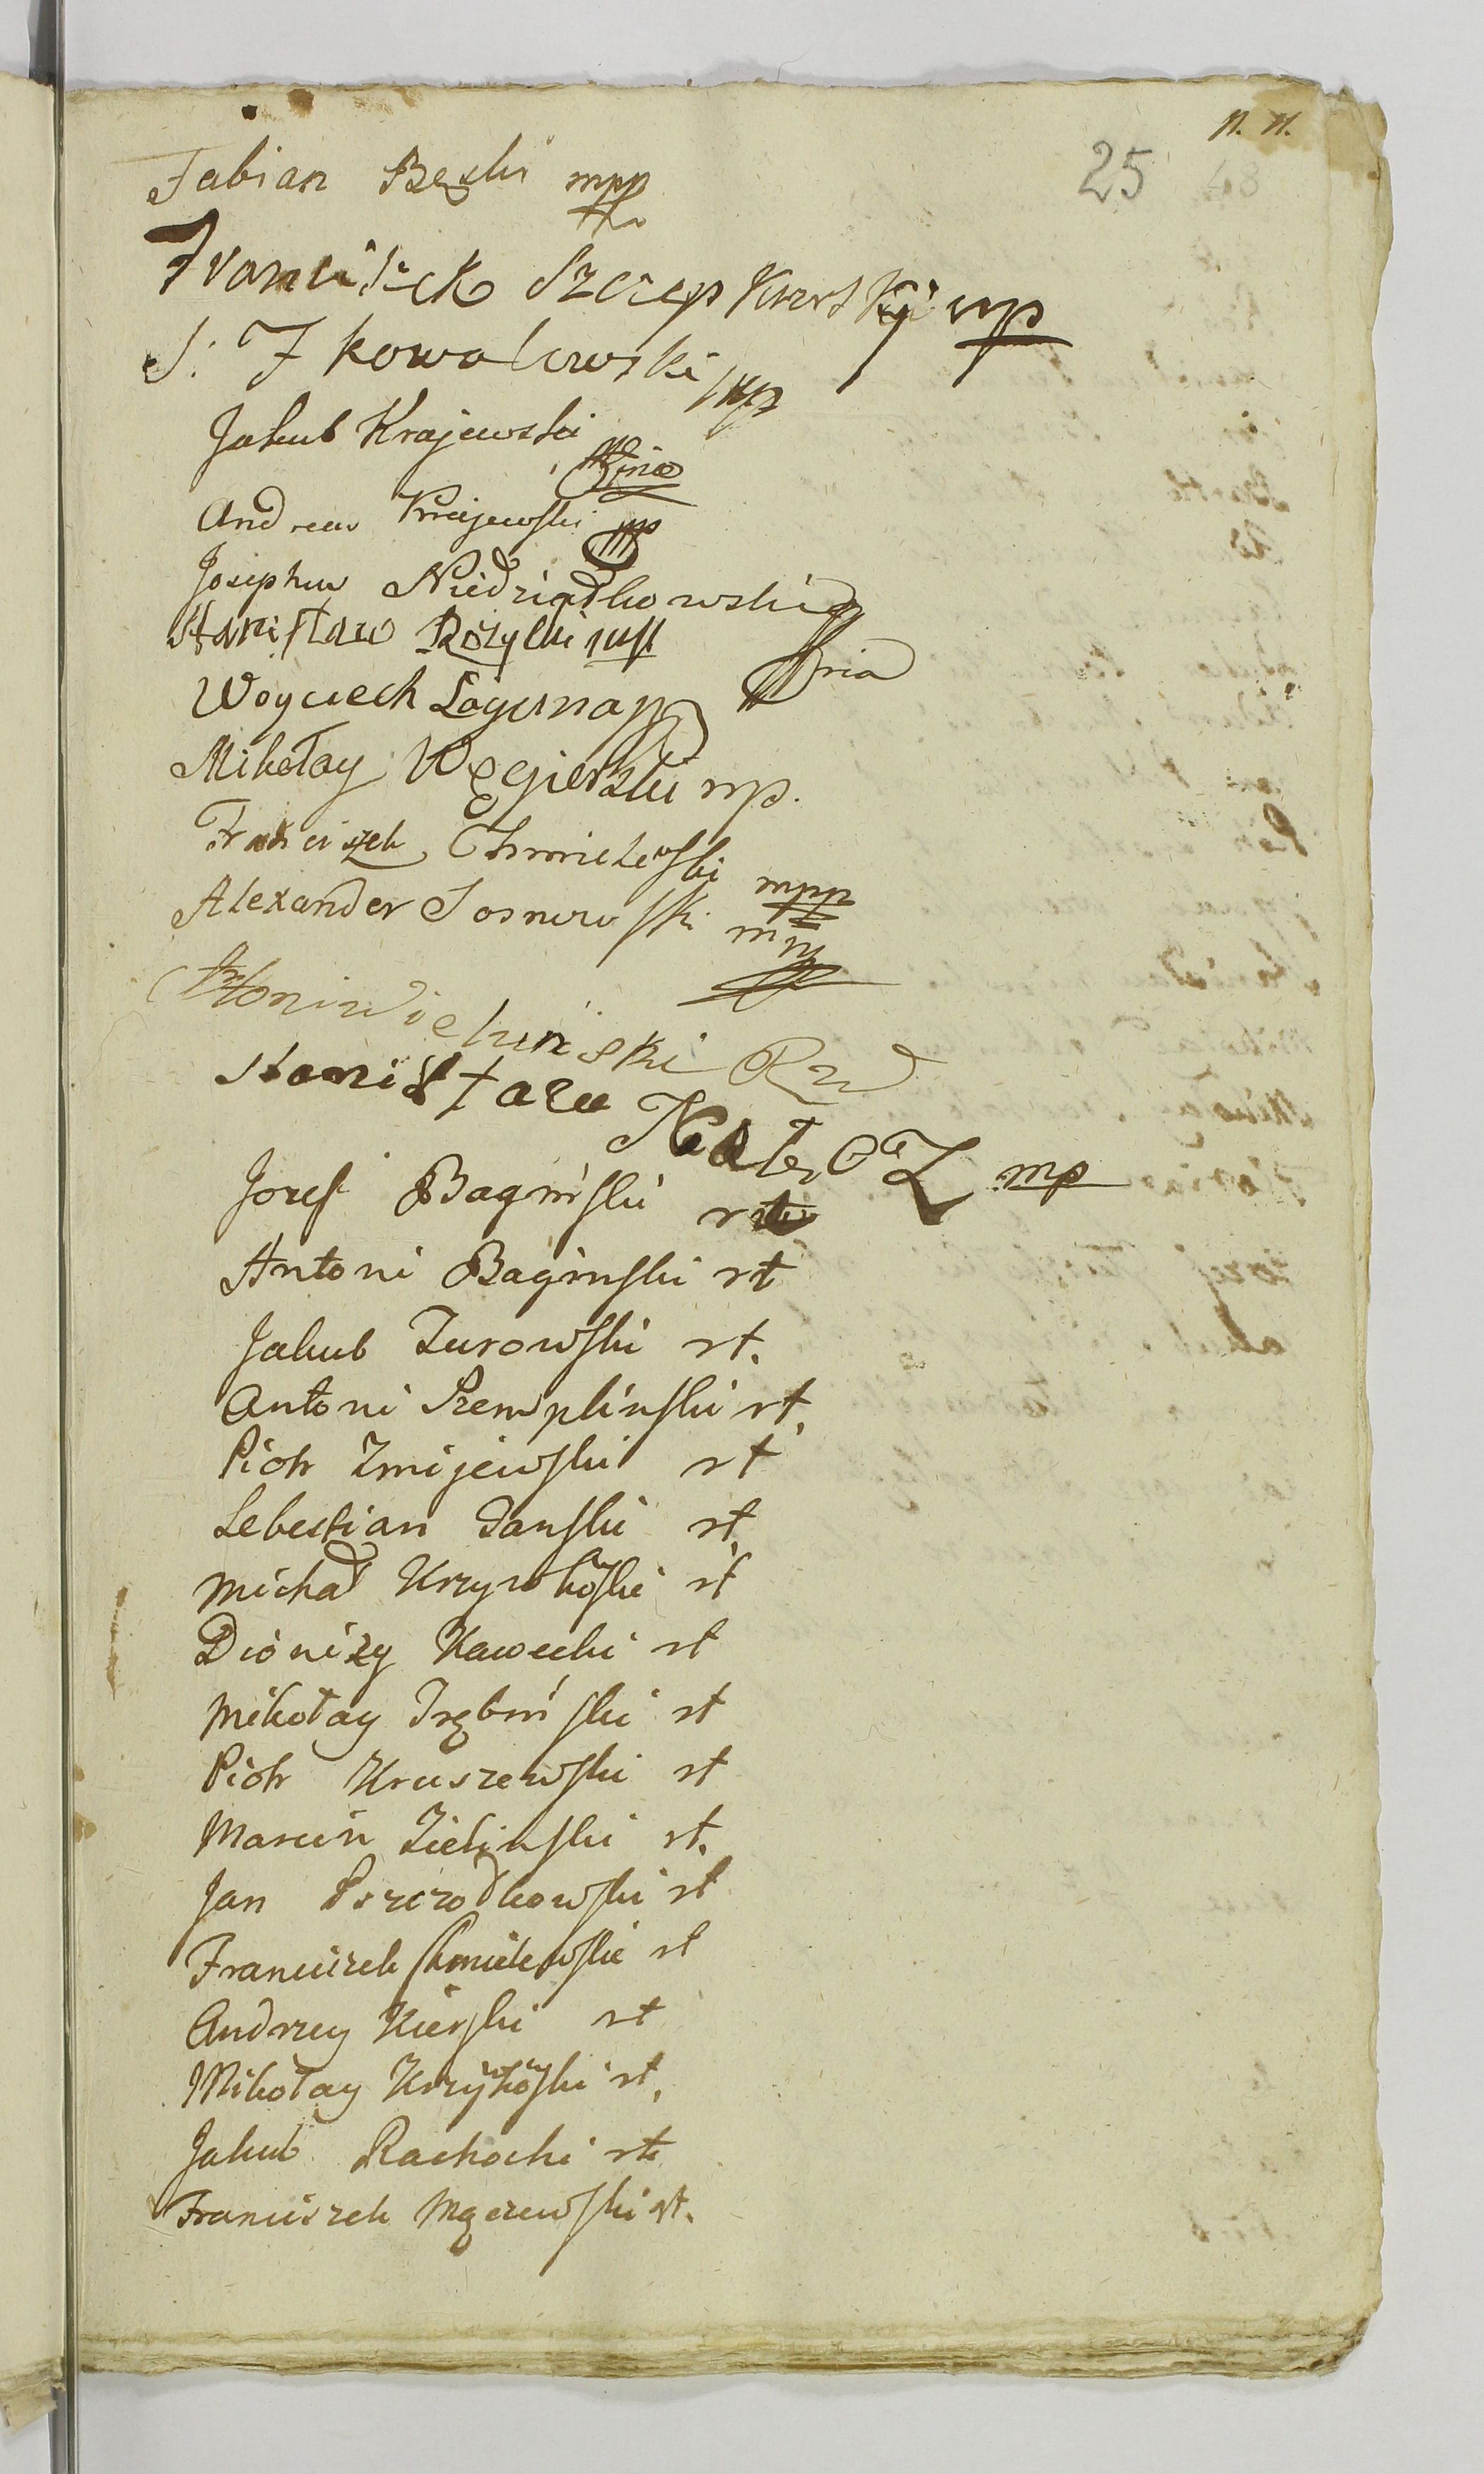 n. n.
25 48
Fabian Bęski mpp
Franciszek Szczepkowski mp
S: J Kowalewski mp
Jakub Krajewski mp ria
Andreas Krajewski mp
Josephus Niedziadkowski
Stanisław Rożycki mp
ria
Woyciech Laguna mp
Mikołay Węgierski mp.
Franciszek Chmielewski mpp
Alexander Sosnowski mp
Antoni Wieluński
Stanisław mp
Jozef Bagiński
Antoni Baginski xt
Jakub Zurowski xt.
Antoni Szemplinski xt,
Piotr Zmijewski xt
Sebestian Danski xt
Michał Krzywkoski xt
Dionizy Kawecki xt
Mikołay Trębiński xt
Piotr Kruszewski xt
Marcin Zielinski xt.
Jan Pszczodkowski xt
Franciszek Chmielewski xt
Andrzey Kierski xt
Mikołay Krzywkoski xt,
Jakub Rachocki xt
Franciszek xt.